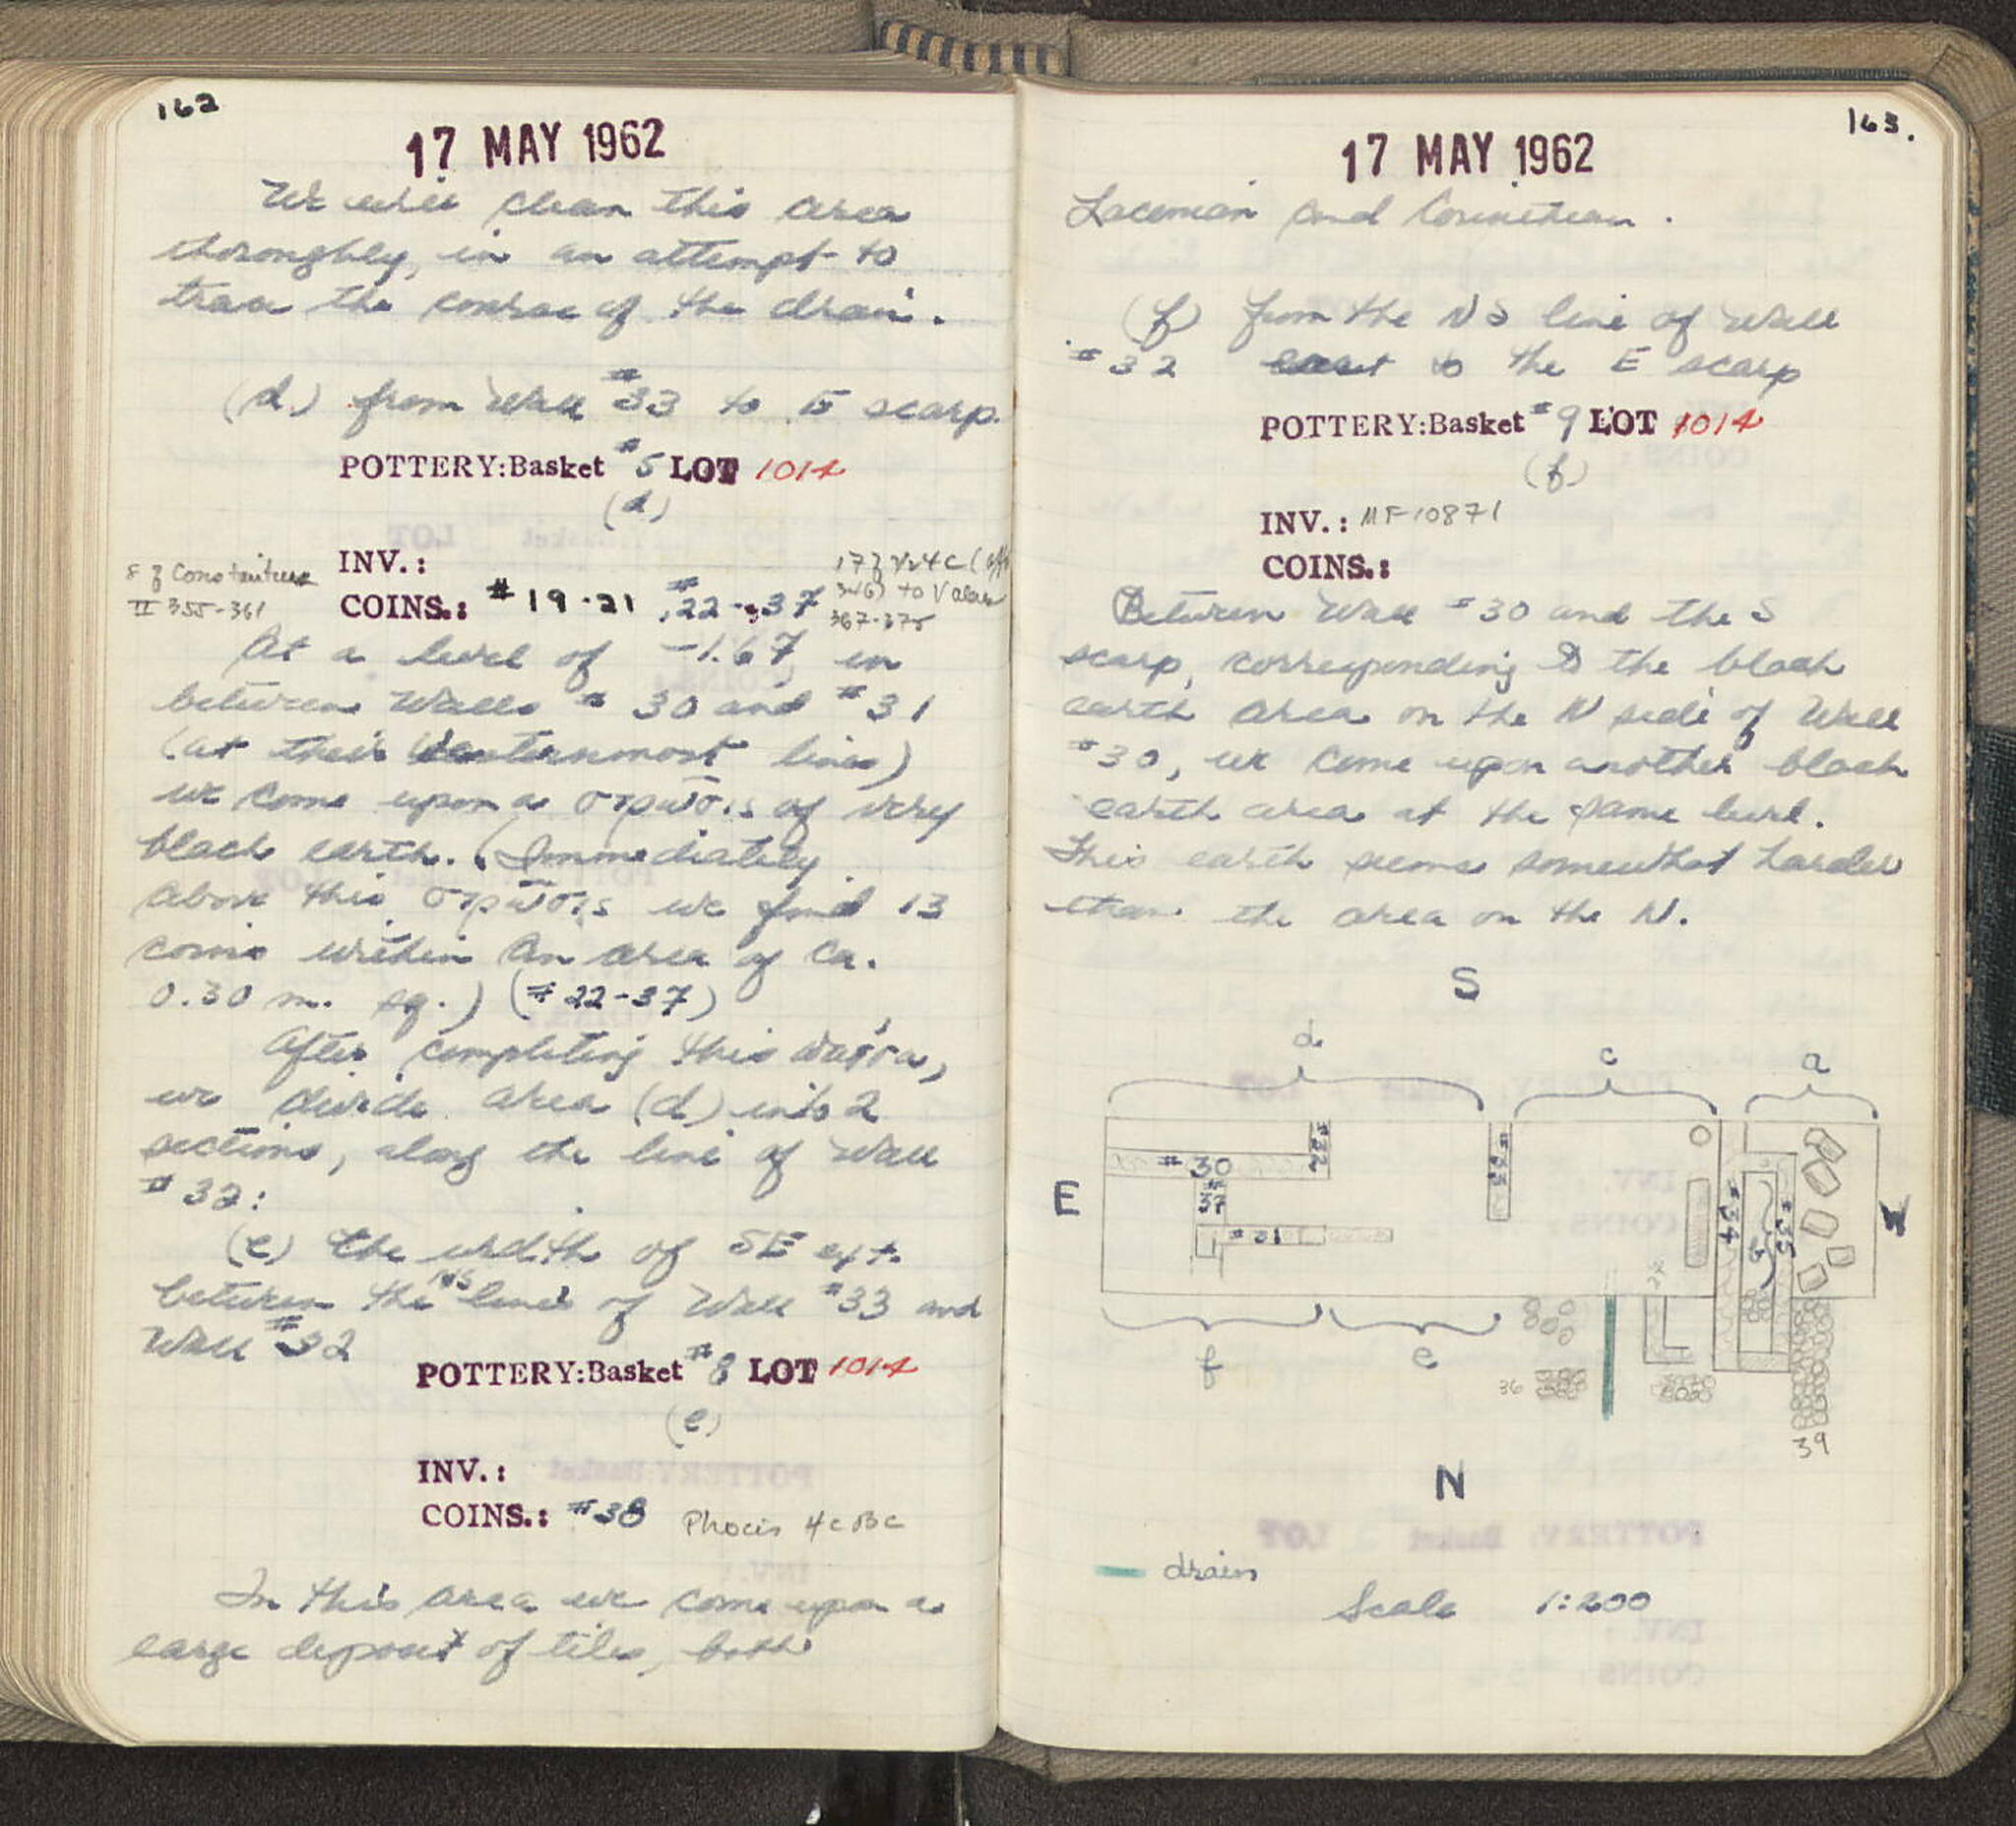 162
17 MAY 1962
We will clean this area
thoroughly, in an attempt to
trace the course of the drain.
(d.) from Wall #33 to E scarp.
POTTERY:Basket #5 LOT 1014
(d)
INV.:
8 of Constantius
II 355-361
COINS.: #19-21, #22-37
17 of 4 C (
346) to Valens
367-375
At a level of -1.67 in
between Walls #30 and #31
(at their Westernmost lines)
we come upon a στρῶσις of very
black earth. (Immediately
above this στρῶσις we find 13
coins within an area of ca.
0.30 m. sq.) (#22-37)
After completing this
we divide area (d) into 2
sections, along the line of Wall
#32:
(e) the width of SE ext.
between the NS lines of Wall #33 and
Wall #32
POTTERY:Basket #8 LOT 1014
(e)
INV.:
COINS.: #38 Phocis 4c BC
In this area we come upon a
large deposit of tiles, both
163.
17 MAY 1962
Laconian and Corinthian.
(f) from the NS line of Wall
#32 east to the E scarp
POTTERY:Basket #9 LOT 1014
(f)
INV.: MF-10871
COINS.:
Between Wall #30 and the S
scarp, corresponding to the black
earth area on the N side of Wall
#30, we come upon another black
earth area at the same level.
This earth seems somewhat harder
than the area on the N.
S
d c a
#32 #33
#30
E
#37
#34 #35
f e
36
39
N
drain
Scale 1:200